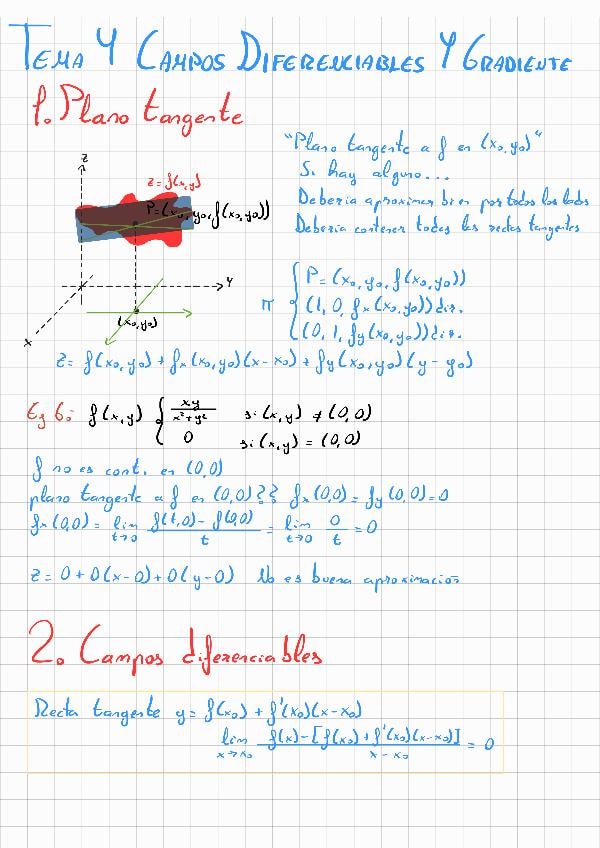 TEMA 4 CAMPOS DIFERENCIABLES Y GRADIENTE
1. Plano tangente
"Plano tangente a f en (x₀,y₀)"
Si hay alguno...
Debería aproximar bien por todos los lados
Debería contener todas las rectas tangentes
z
z=f(x,y)
P=(x₀,y₀,f(x₀,y₀))
y
x
(x₀,y₀)
π { P=(x₀,y₀,f(x₀,y₀))
(1,0,fx(x₀,y₀)) dir.
(0,1,fy(x₀,y₀)) dir.
z=f(x₀,y₀)+fx(x₀,y₀)(x-x₀)+fy(x₀,y₀)(y-y₀)
Ej 6: f(x,y) { xy/(x²+y²) si (x,y)≠(0,0)
0 si (x,y)=(0,0)
f no es cont. en (0,0)
plano tangente a f en (0,0)?? fx(0,0)=fy(0,0)=0
fx(0,0)= lim t→0 (f(t,0)-f(0,0))/t = lim t→0 0/t =0
z=0+0(x-0)+0(y-0) No es buena aproximación
2. Campos diferenciables
Recta tangente y=f(x₀)+f'(x₀)(x-x₀)
lim x→x₀ (f(x)-[f(x₀)+f'(x₀)(x-x₀)])/(x-x₀) = 0